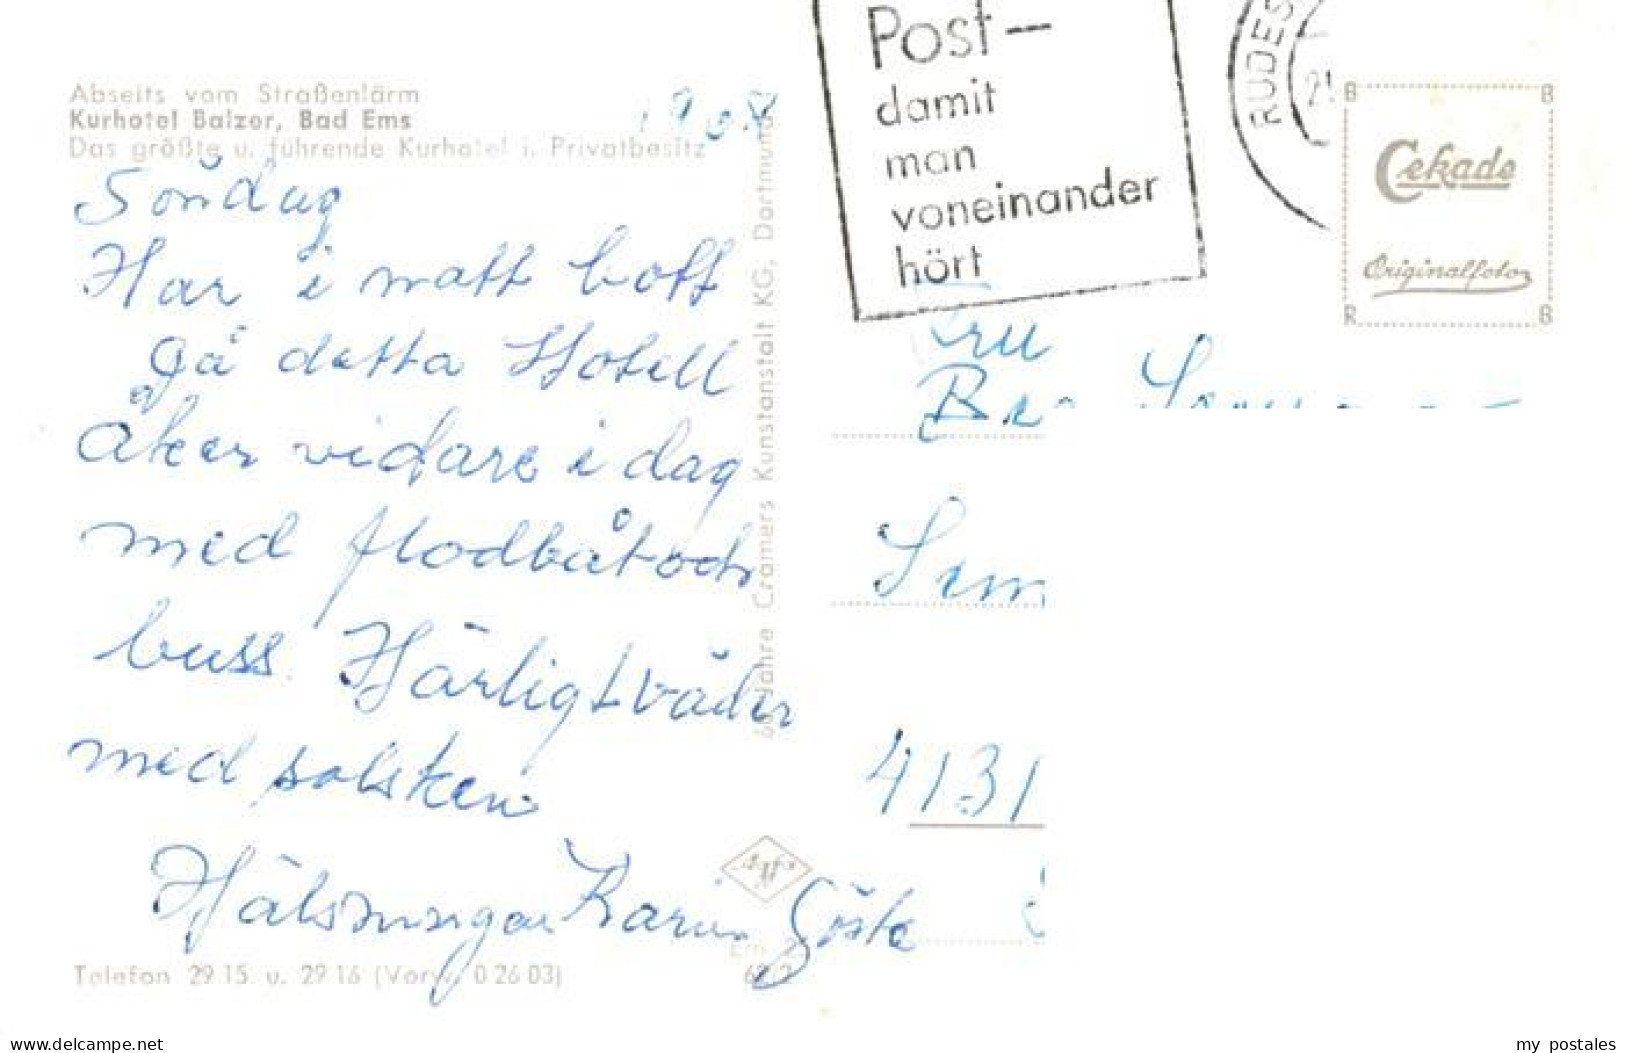 Abseits vom Straßenlärm
Kurhotel Balzer, Bad Ems
Das größte u. führende Kurhotel i. Privatbesitz
Söndag
Har i natt bott
på detta Hotell
åker vidare i dag
med flodbåt och
buss. Härligt väder
med solsken
Hälsningar Karin Gösta
Telefon 29 15 u. 29 16 (Vorw. 0 26 03)
60 Jahre Cramers Kunstanstalt KG, Dortmund
Agfa
Post–
damit
man
voneinander
hört
RÜDES
Cekade
Originalfoto
B B
R B
Fru
4131
delcampe.net
my_postales